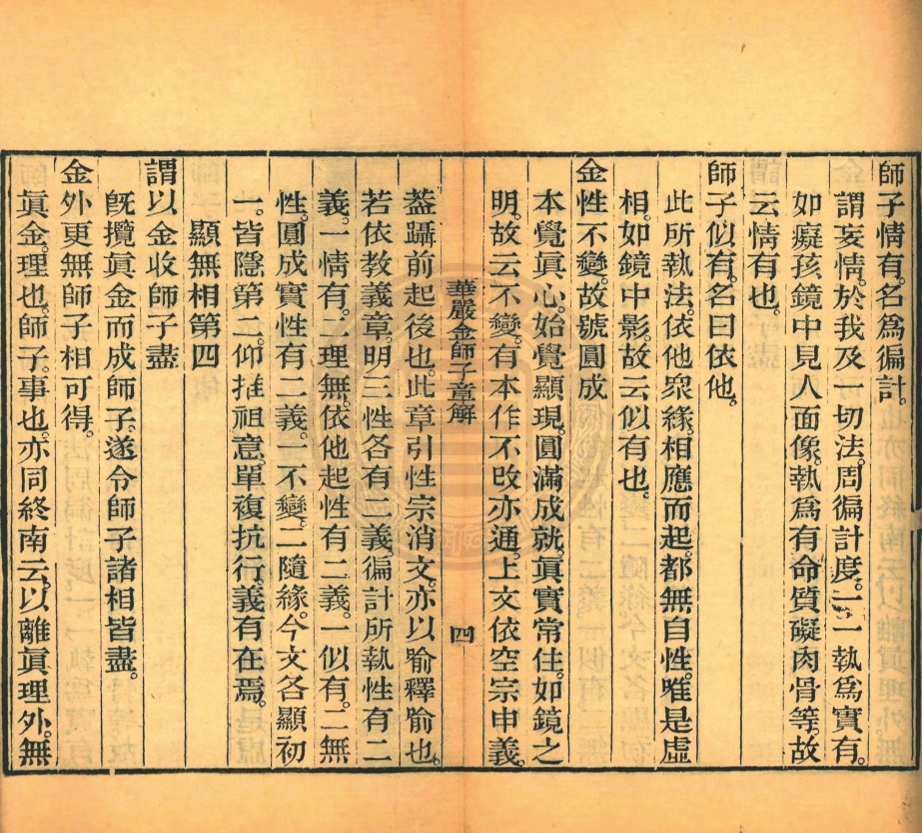 師子情有。名爲徧計。
謂妄情。於我及一切法。周徧計度。一一執爲實有。
如癡孩鏡中見人面像。執爲有命質礙肉骨等。故
云情有也。
師子似有。名曰依他。
此所執法。依他眾緣。相應而起。都無自性。唯是虛
相。如鏡中影。故云似有也。
金性不變。故號圓成
本覺眞心。始覺顯現。圓滿成就。眞實常住。如鏡之
明。故云不變。有本作不改亦通。上文依空宗申義。
華嚴金師子章解 四
葢躡前起後也。此章引性宗消文。亦以喻釋喻也。
若依教義章。明三性各有二義。徧計所執性有二
義。一情有。二理無。依他起性有二義。一似有。二無
性。圓成實性有二義。一不變。二隨緣。今文各顯初
一。皆隱第二。仰推祖意。單複抗行。義有在焉。
顯無相第四
謂以金收師子盡
旣攬眞金而成師子。遂令師子諸相皆盡。
金外更無師子相可得。
眞金。理也。師子。事也。亦同終南云。以離眞理外。無